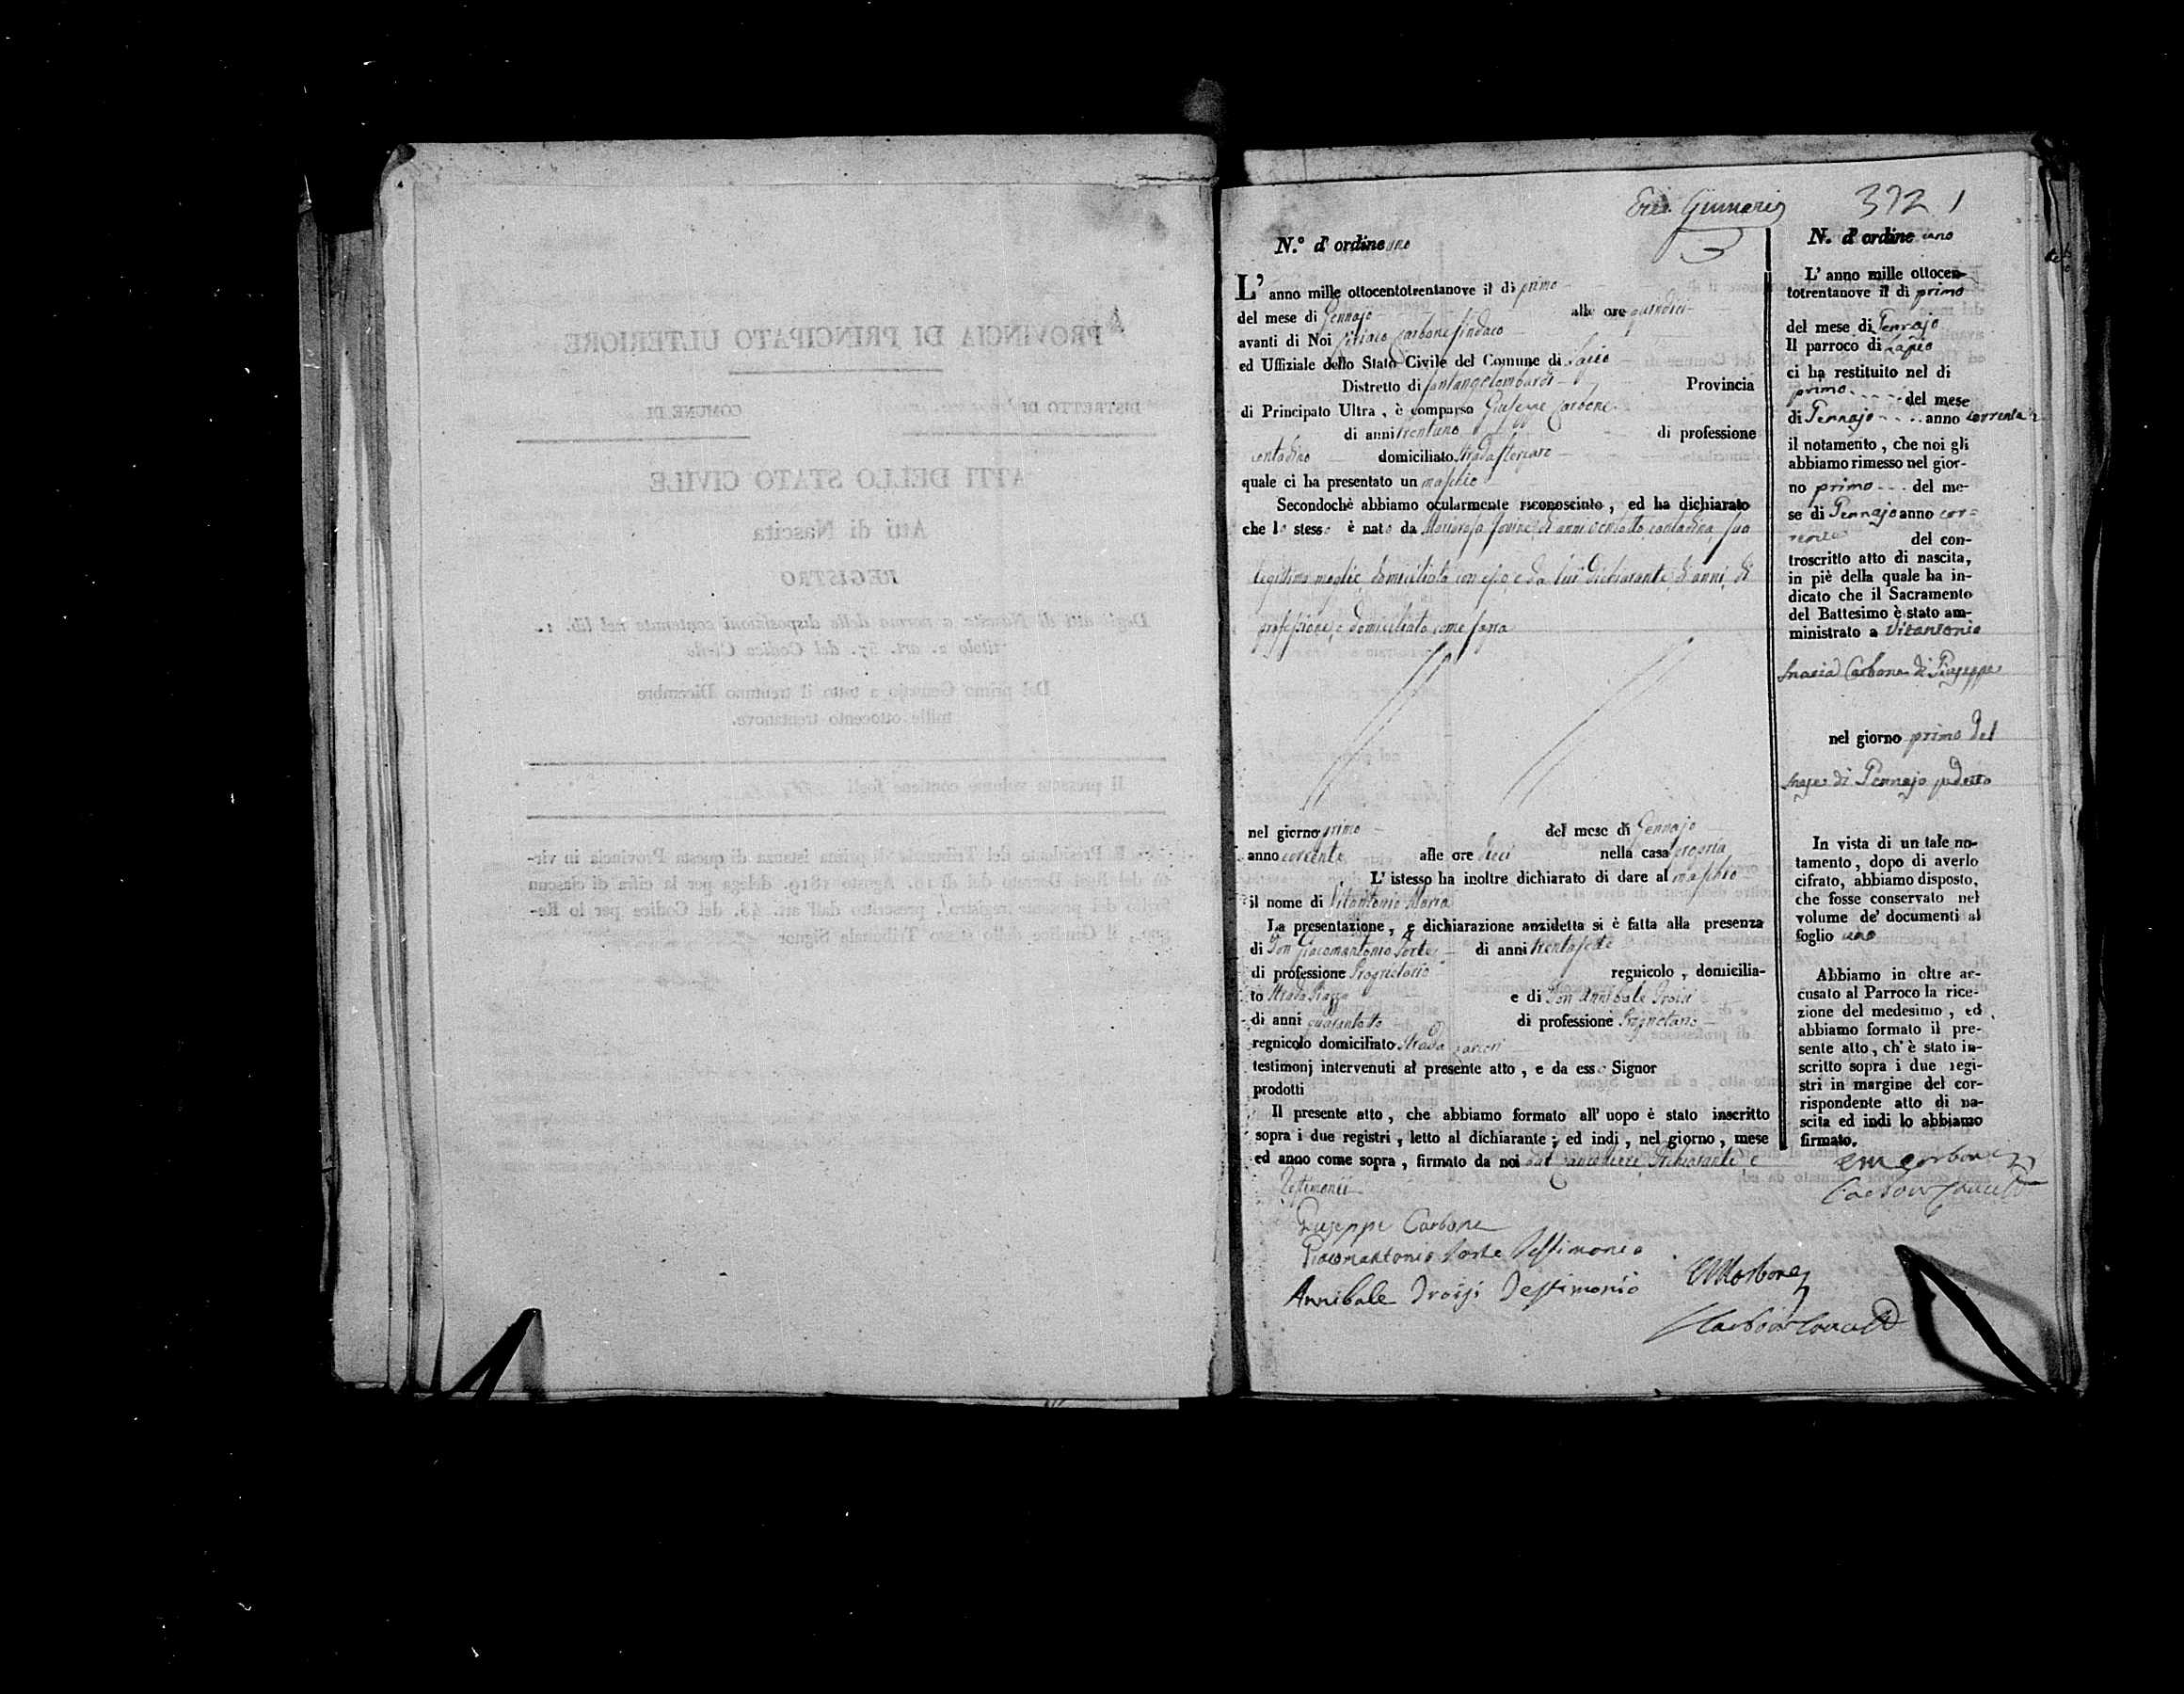 372 1
N.º d'ordine uno
L' anno mille ottocentotrentanove il di primo
del mese di Gennajo alle ore quindici
avanti di Noi Ciriaco Carbone Sindaco
ed Uffiziale dello Stato Civile del Comune di Lapio
Distretto di Santangelolombardi Provincia
di Principato Ultra, è comparso Giuseppe Carbone
di anni trentuno di professione
contadino domiciliato Strada
quale ci ha presentato un maschio
Secondochè abbiamo ocularmente riconosciuto, ed ha dichiarato
che lo stesso è nato da Mariarosa Iovine di anni ventotto contadina sua
legittima moglie domiciliata con esso e da lui dichiarante di anni, di
professione, e domiciliato come sopra
nel giorno primo del mese di Gennajo
anno corrente alle ore dieci nella casa propria
L' istesso ha inoltre dichiarato di dare al maschio
il nome di Vitantonio Maria
La presentazione, e dichiarazione anzidetta si è fatta alla presenza
di Don Giacomantonio Forte di anni trentasette
di professione Proprietario regnicolo, domicilia-
to Strada Piazza e di Don Annibale Troisi
di anni quarantotto di professione Proprietario
regnicolo domiciliato Strada
testimonj intervenuti al presente atto, e da esso Signor
prodotti
Il presente atto, che abbiamo formato all' uopo è stato inscritto
sopra i due registri, letto al dichiarante; ed indi, nel giorno, mese
ed anno come sopra, firmato da noi dal Cancelliere Dichiarante, e
Testimonii
Giuseppe Carbone
Giacomantonio Forte Testimonio
Annibale Troisi Testimonio
N. d'ordine uno
L' anno mille ottocen-
totrentanove il di primo
del mese di Gennajo
Il parroco di Lapio
ci ha restituito nel di
primo del mese
di Gennajo anno corrente
il notamento, che noi gli
abbiamo rimesso nel gior-
no primo del me-
se di Gennajo anno cor=
rente del con-
troscritto atto di nascita,
in piè della quale ha in-
dicato che il Sacramento
del Battesimo è stato am-
ministrato a Vitantonio
Maria Carbone di Giuseppe
nel giorno primo del
mese di Gennajo sudetto
In vista di un tale no-
tamento, dopo di averlo
cifrato, abbiamo disposto,
che fosse conservato nel
volume de' documenti al
foglio uno
Abbiamo in oltre ac-
cusato al Parroco la rice-
zione del medesimo, ed
abbiamo formato il pre-
sente atto, ch' è stato in-
scritto sopra i due regi-
stri in margine del cor-
rispondente atto di na-
scita ed indi lo abbiamo
firmato.
PROVINCIA DI PRINCIPATO ULTERIORE
DISTRETTO DI COMUNE DI
ATTI DELLO STATO CIVILE
Atti di Nascita
REGISTRO
Degli atti di Nascita a norma delle disposizioni contenute nel lib. 1.
titolo 2. art. 57. del Codice Civile
Dal primo Gennajo a tutto il trentuno Dicembre
mille ottocento trentanove.
Il presente volume contiene fogli